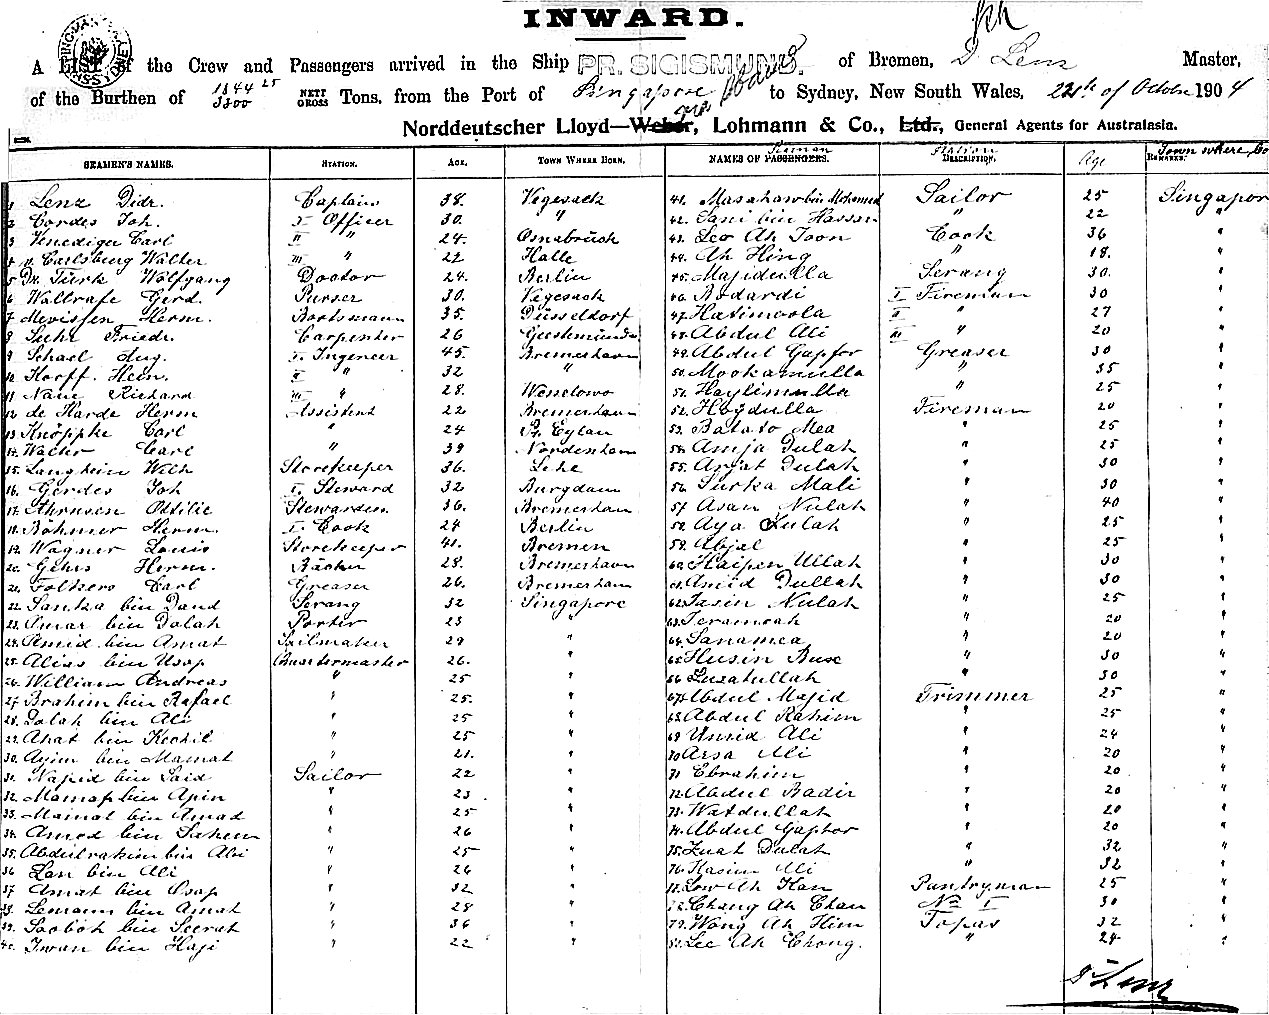 INWARD.
A LIST of the Crew and Passengers arrived in the Ship PR. SIGISMUND. of Bremen, D Lenz Master,
of the Burthen of 1844 25 3300 NETT GROSS Tons, from the Port of Singapore via to Sydney, New South Wales, 22th of October 1904
Norddeutscher Lloyd—Weber, Lohmann & Co., Ltd., General Agents for Australasia.
SEAMEN'S NAMES. STATION. AGE. TOWN WHERE BORN. NAMES OF PASSENGERS. Seaman DESCRIPTION. Station Age REMARKS. Town where
1 Lenz Didr. Captain 38. Vegesack 41. Masahar bin Mohamed Sailor 25 Singapor
2 Cordes Joh. I Officer 30. " 42. Sani bin Hassan " 22 "
3 Venediger Carl II " 24. Osnabrück 43. Leo Ah Joon Cook 36 "
4 v. Carlsburg Walter III " 22 Halle 44. Ah Hing " 18. "
5 Dr. Türk Wolfgang Doctor 24. Berlin 45. Majidulla Serang 30. "
6 Wallrafe Gerd. Purser 30. Vegesack 46. Bodardi I Fireman 30 "
7 Mevissen Herm. Bootsmann 35 Düsseldorf 47. Hatimoola II " 27 "
8 Suhr Friedr. Carpenter 26 Geestemünde 48. Abdul Ali III " 20 "
9 Schael Aug. I. Ingeneer 45. Bremerhavn 49. Abdul Gapfor Greaser 30 "
10 Korff. Hein. II " 32 " 50. Mookamulla " 35 "
11 Naue Richard III " 28. 51. Haylimulla " 25 "
12 de Harde Herm Assistent 22 Bremerhavn 52. Hoydulla Fireman 20 "
13. Knöpke Carl " 24 Pr. Eylau 53. Batato Mea " 25 "
14. Walter Carl " 39 Nordenham 54. Amja Dulah " 25 "
15. Langhein Wilh Storekeeper 36. Lehe 55. Arjat Dulah " 30 "
16. Gerdes Joh I. Steward 32 Burgdam 56. Surka Mali " 30 "
17. Ahrnsen Ottilie Stewardess. 36. Bremerhavn 57. Asan Nulah " 40 "
18. Böhmer Herm. I. Cook 24 Berlin 58. Aya Lulah " 25 "
19. Wagner Louis Storekeeper 41. Bremen 59. Abjal " 25 "
20. Gehrs Herm. Bäcker 28. Bremerhavn 60. Haipen Ullah " 30 "
21. Folkers Carl Greaser 26. Bremerhavn 61. Amid Dullah " 30 "
22. Sanka bin Daud Serang 32 Singapore 62. Jasin Nulah " 25 "
23. Omar bin Dolah Porter 23 " 63. Jeramoah " 20 "
24. Amid bin Amat Sailmaker 29 " 64. Sanamea " 20 "
25. Alias bin Usop Quartermaster 26. " 65. Husin Buse " 30 "
26. William Andreas " 25 " 66 Luzatullah " 30 "
27. Brahim bin Rafael " 25. " 67. Abdul Majid Trimmer 25 "
28. Dolah bin Ali " 25 " 68. Abdul Rahim " 25 "
29. Ahat bin Kechil " 25 " 69 Unrid Ali " 24 "
30. Ayim bin Mamat " 21. " 70 Arsa Ali " 20 "
31. Napid bin Said Sailor 22 " 71 Ebrahim " 20 "
32. Mamap bin Apin " 23 " 72. Abdul Badir " 20 "
33. Mamat bin Amad " 25 " 73. Watdullah " 20 "
34. Amed bin Sahem " 26 " 74. Abdul Gaphor " 20 "
35. Abdulrahim bin Abi " 25 " 75. Luah Dulah " 32 "
36 Lan bin Ali " 26 " 76. Kasim Ali " 32 "
37 Amat bin Osap " 32 " 77. Low Ah Kan Pantryman 25 "
38. Lemann bin Amat " 28 " 78. Chang Ah Chan No. I 30 "
39. Saoboh bin Seerah " 36 " 79. Wong Ah Him Topas 32 "
40. Iwan bin Haji " 22 " 80. Lee Ah Chong. " 24 "
D Lenz